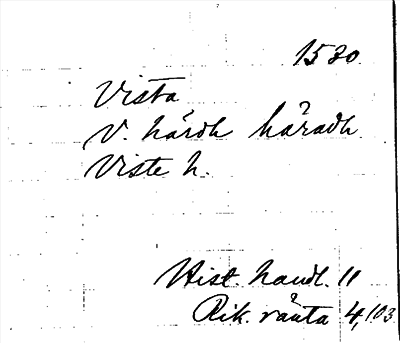 1530
Vista
V. hårdh håradh
Viste h.
Hist. handl. 11
Rik. ränta 4,103